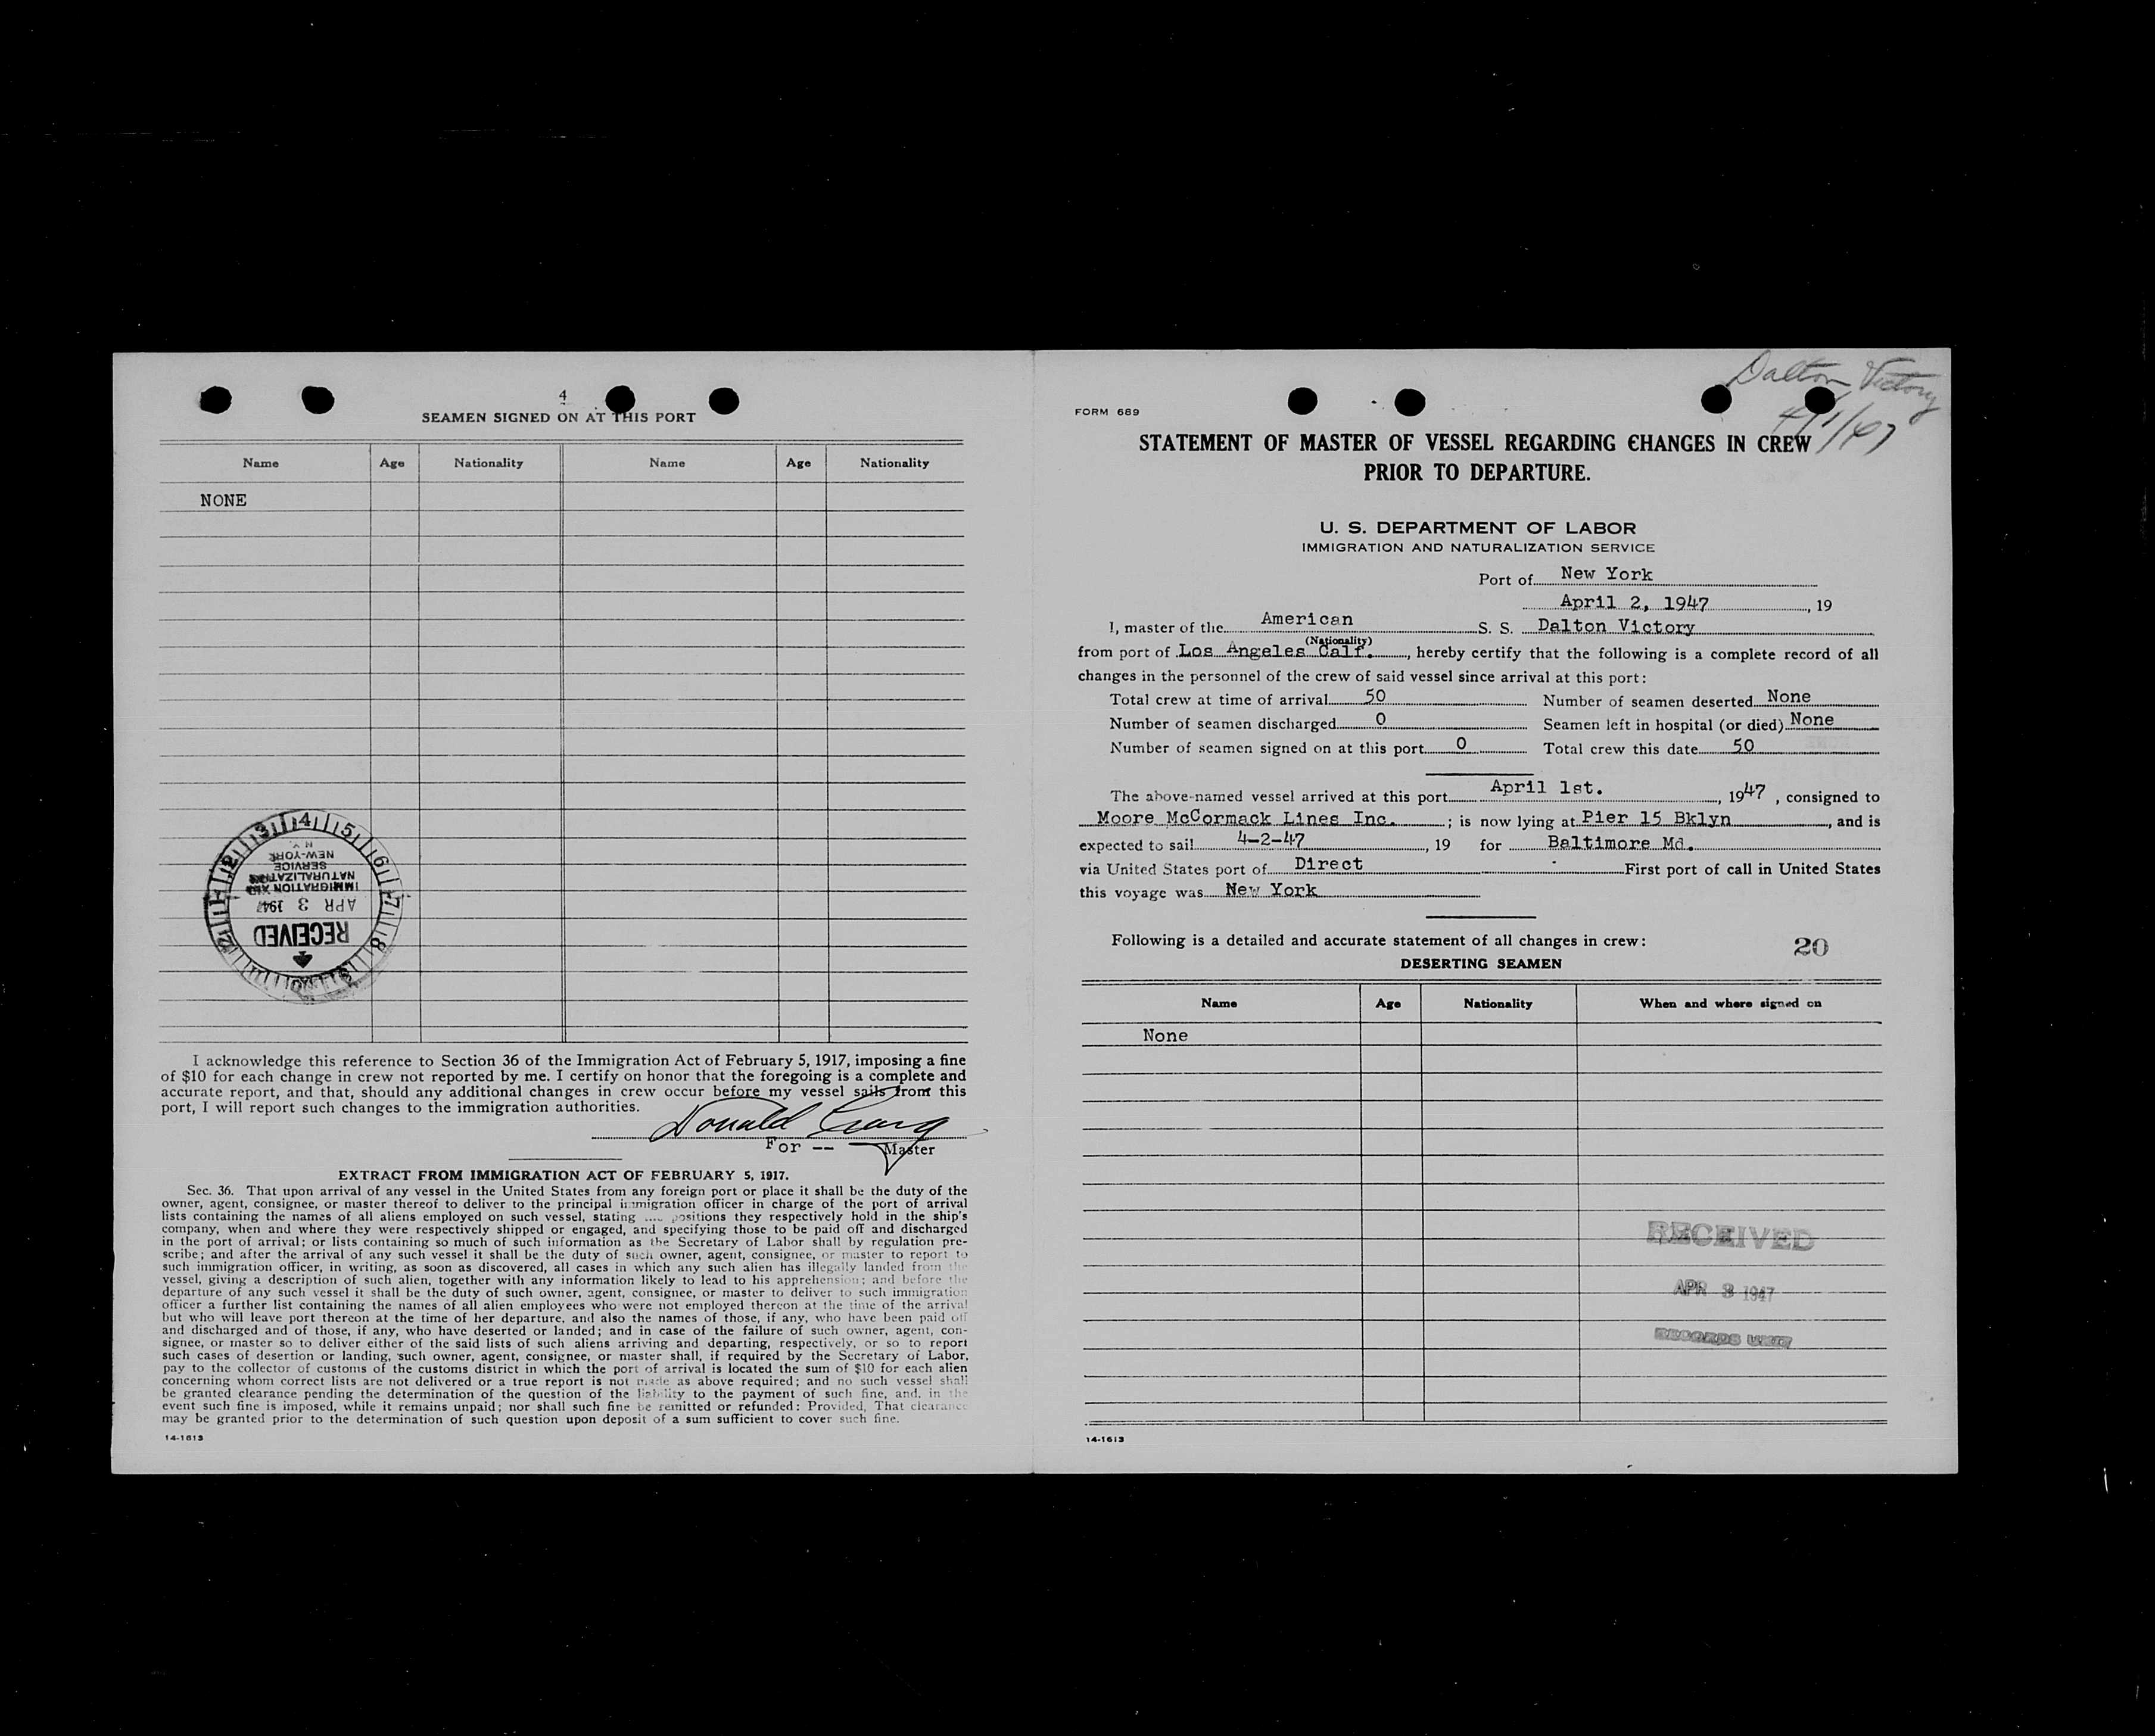 4
SEAMEN SIGNED ON AT THIS PORT
Name Age Nationality Name Age Nationality
NONE
1 2 3 4 5 6 7 8
N.Y.
NEW-YORK
SERVICE
NATURALIZATION
IMMIGRATION AND
APR 3 1947
RECEIVED
I acknowledge this reference to Section 36 of the Immigration Act of February 5, 1917, imposing a fine
of $10 for each change in crew not reported by me. I certify on honor that the foregoing is a complete and
accurate report, and that, should any additional changes in crew occur before my vessel sails from this
port, I will report such changes to the immigration authorities.
Donald
For -- Master
EXTRACT FROM IMMIGRATION ACT OF FEBRUARY 5, 1917.
Sec. 36. That upon arrival of any vessel in the United States from any foreign port or place it shall be the duty of the
owner, agent, consignee, or master thereof to deliver to the principal immigration officer in charge of the port of arrival
lists containing the names of all aliens employed on such vessel, stating .... positions they respectively hold in the ship's
company, when and where they were respectively shipped or engaged, and specifying those to be paid off and discharged
in the port of arrival; or lists containing so much of such information as the Secretary of Labor shall by regulation pre-
scribe; and after the arrival of any such vessel it shall be the duty of such owner, agent, consignee, or master to report to
such immigration officer, in writing, as soon as discovered, all cases in which any such alien has illegally landed from the
vessel, giving a description of such alien, together with any information likely to lead to his apprehension; and before the
departure of any such vessel it shall be the duty of such owner, agent, consignee, or master to deliver to such immigration
officer a further list containing the names of all alien employees who were not employed thereon at the time of the arrival
but who will leave port thereon at the time of her departure, and also the names of those, if any, who have been paid off
and discharged and of those, if any, who have deserted or landed; and in case of the failure of such owner, agent, con-
signee, or master so to deliver either of the said lists of such aliens arriving and departing, respectively, or so to report
such cases of desertion or landing, such owner, agent, consignee, or master shall, if required by the Secretary of Labor,
pay to the collector of customs of the customs district in which the port of arrival is located the sum of $10 for each alien
concerning whom correct lists are not delivered or a true report is not made as above required; and no such vessel shall
be granted clearance pending the determination of the question of the liability to the payment of such fine, and, in the
event such fine is imposed, while it remains unpaid; nor shall such fine be remitted or refunded: Provided, That clearance
may be granted prior to the determination of such question upon deposit of a sum sufficient to cover such fine.
14-1613
Dalton Victory
4/1/47
FORM 689
STATEMENT OF MASTER OF VESSEL REGARDING CHANGES IN CREW
PRIOR TO DEPARTURE.
U. S. DEPARTMENT OF LABOR
IMMIGRATION AND NATURALIZATION SERVICE
Port of New York
April 2, 1947, 19
I, master of the American S. S. Dalton Victory
(Nationality)
from port of Los Angeles Calf., hereby certify that the following is a complete record of all
changes in the personnel of the crew of said vessel since arrival at this port:
Total crew at time of arrival 50 Number of seamen deserted None
Number of seamen discharged 0 Seamen left in hospital (or died) None
Number of seamen signed on at this port 0 Total crew this date 50
The above-named vessel arrived at this port April 1st., 1947, consigned to
Moore McCormack Lines Inc.; is now lying at Pier 15 Bklyn, and is
expected to sail 4-2-47, 19 for Baltimore Md.
via United States port of Direct First port of call in United States
this voyage was New York
Following is a detailed and accurate statement of all changes in crew:
20
DESERTING SEAMEN
Name Age Nationality When and where signed on
None
RECEIVED
APR 3 1947
RECORDS UNIT
14-1613